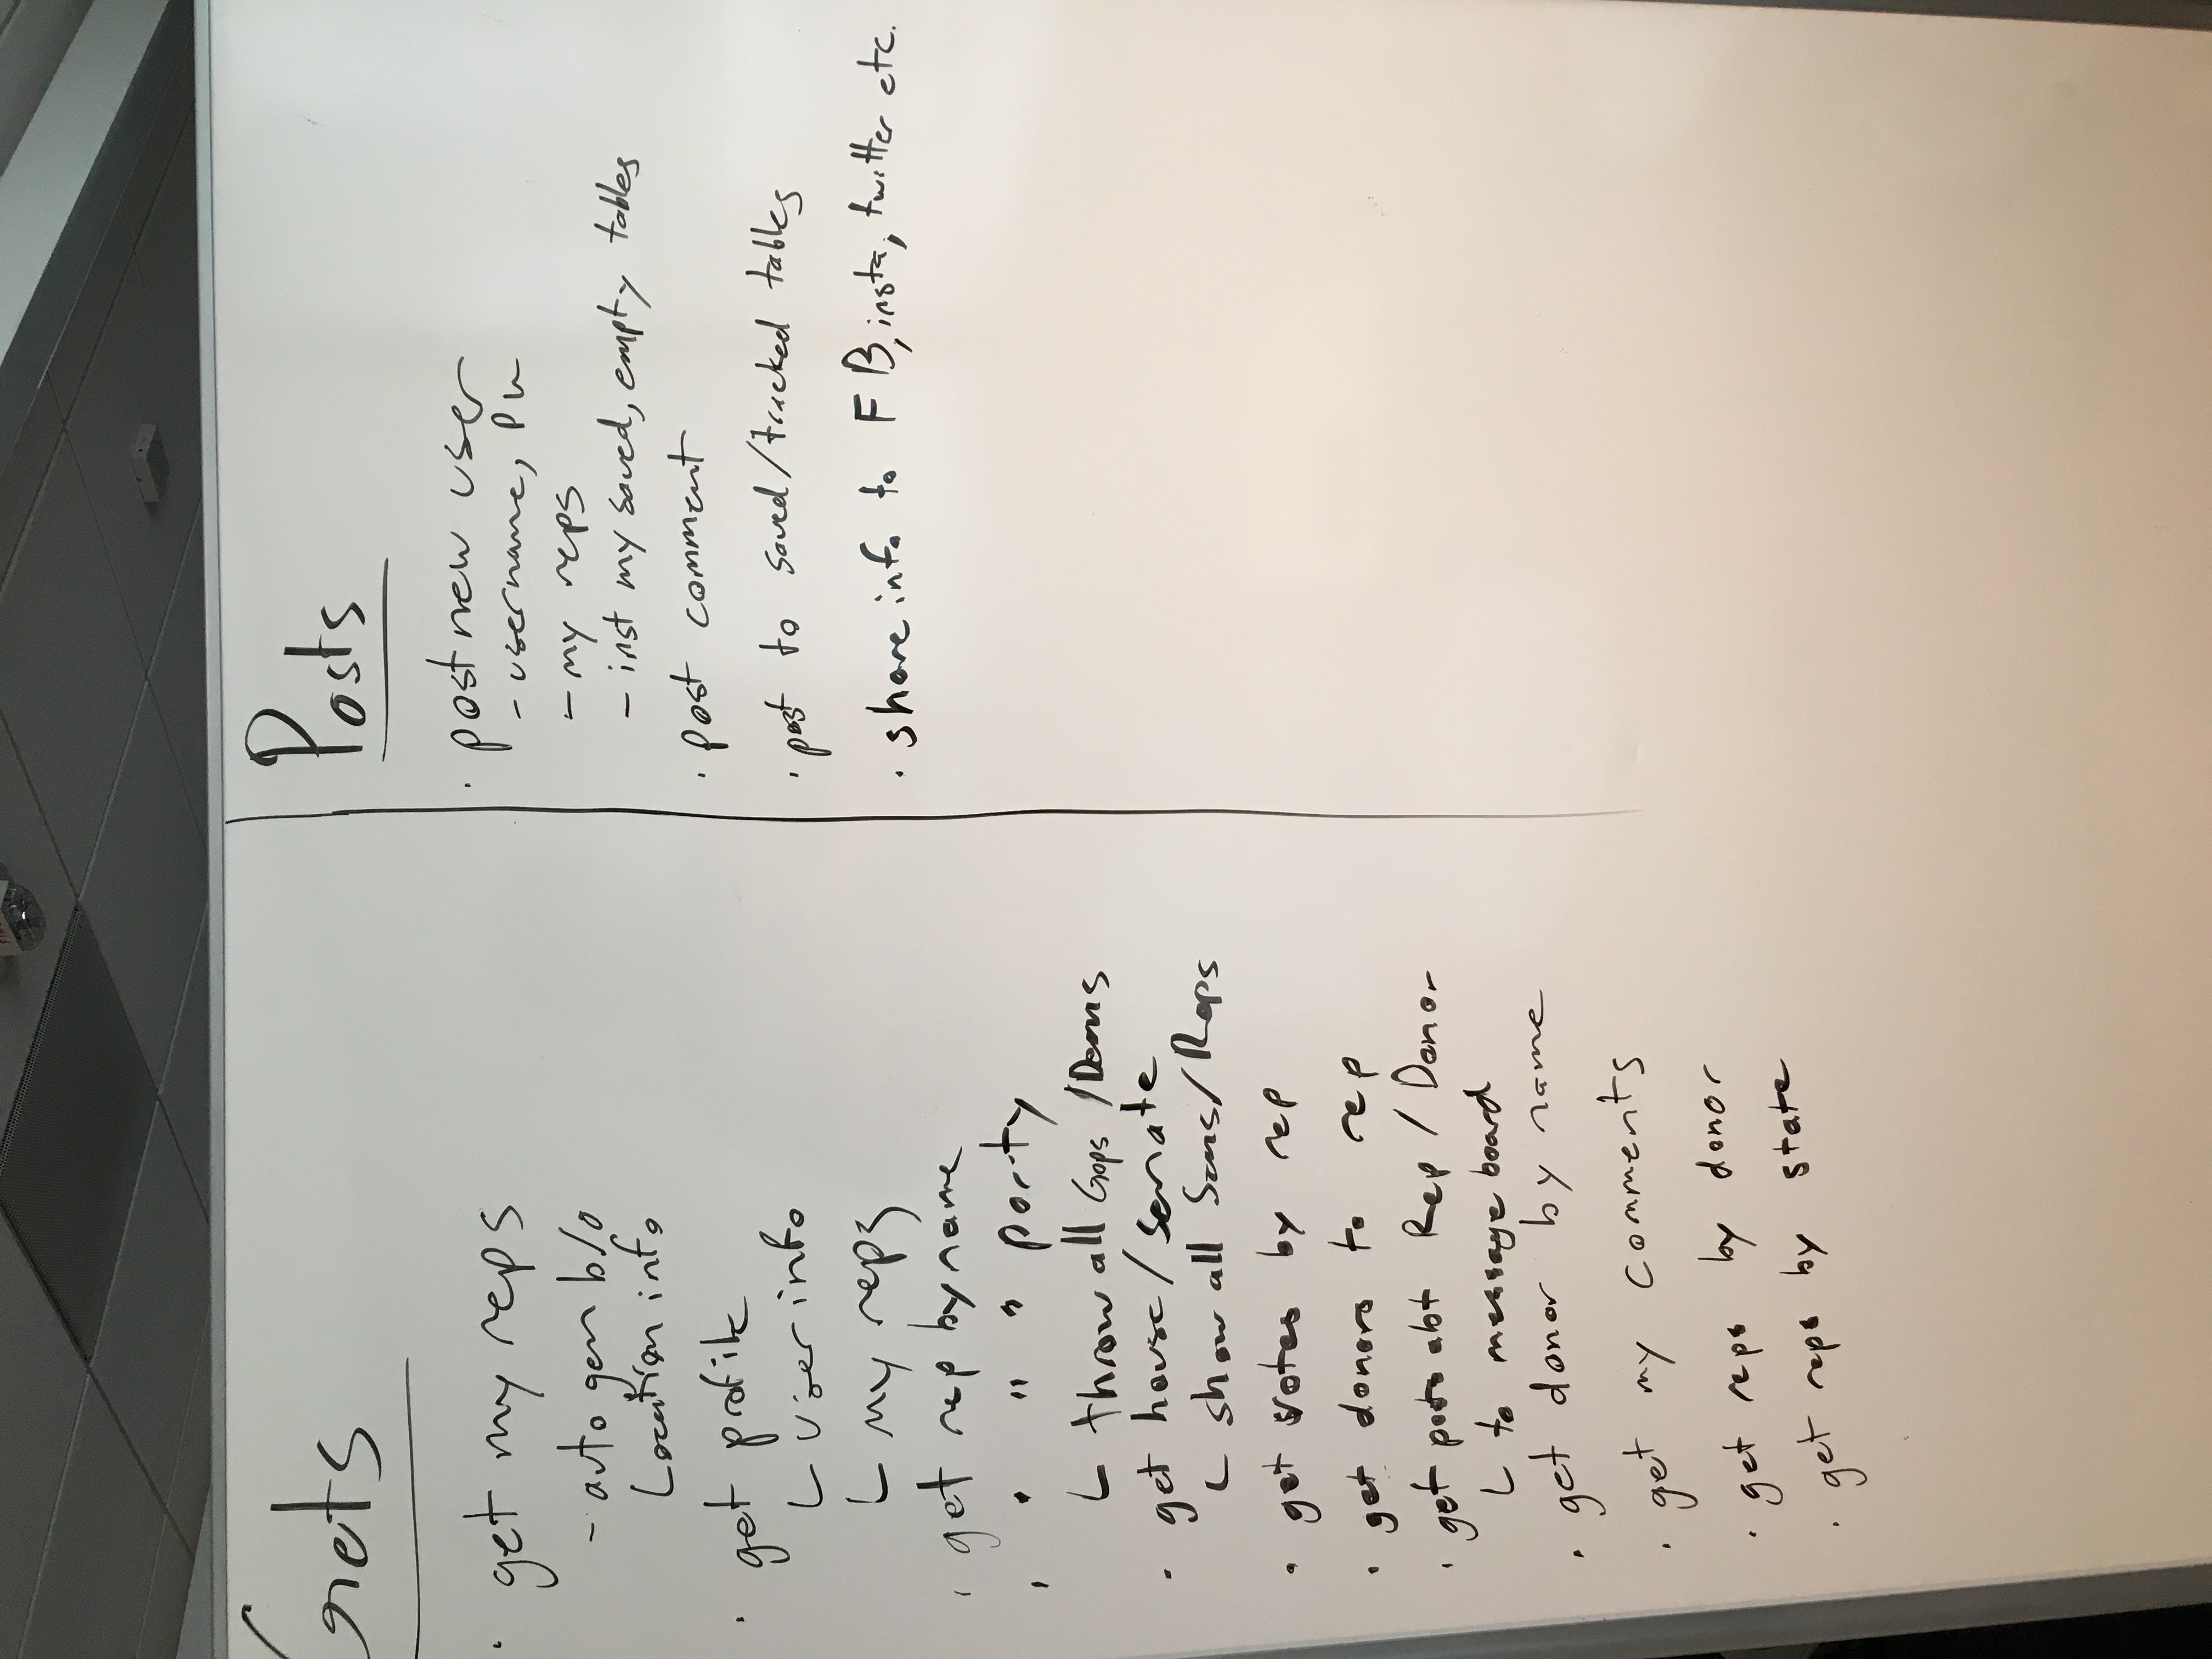 Gets
· get my reps
- auto gen b/o
Location info
· get profile
└ User info
└ My reps
· get rep by name
· " " " party
└ throw all Gops / Dems
· get house / senate
└ show all Sens / Reps
· get votes by rep
· get donors to rep
· get posts abt Rep / Donor
└ to message board
· get donor by name
· get my comments
· get reps by donor
· get reps by state
Posts
· post new user
- username, PW
- my reps
- inst my saved, empty tables
· post comment
· post to saved/tracked tables
· share info to FB, insta, twitter etc.